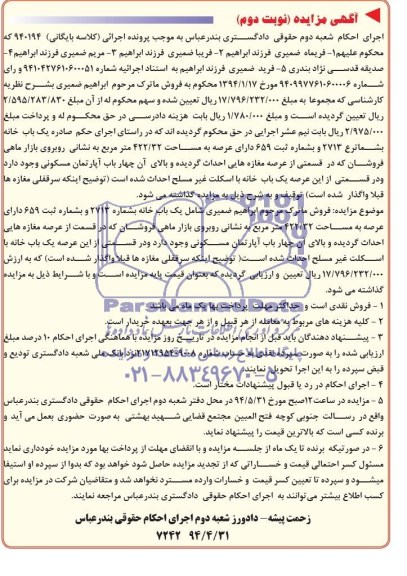 آگهی مزایده (نوبت دوم)
اجرای احکام شعبه دوم حقوقی دادگستری بندرعباس به موجب پرونده اجرائی (کلاسه بایگانی) ۹۴۰۱۹۴ که
محکوم علیهم۱- فریماه ضمیری فرزند ابراهیم ۲- فریبا ضمیری فرزند ابراهیم ۳- مریم ضمیری فرزند ابراهیم۴-
صدیقه قدسی نژاد بندری ۵- فرید ضمیری فرزند ابراهیم به استناد اجرائیه شماره ۹۴۱۰۴۲۷۶۱۰۶۰۰۰۵۱ و رای
شماره ۹۴۰۹۹۷۷۶۱۰۶۰۰۰۰۶ مورخ ۱۳۹۴/۱/۱۷ محکوم به فروش ماترک مرحوم ابراهیم ضمیری بشرح نظریه
کارشناسی که مجموعا به مبلغ ۱۷/۷۹۶/۲۳۲/۰۰۰ ریال تعیین شده و سهم محکوم له از آن مبلغ ۲/۵۹۵/۲۸۳/۸۳۰
ریال تعیین گردیده است و مبلغ ۱/۷۸۰/۰۰۰ ریال بابت هزینه دادرسی در حق محکوم له و پرداخت مبلغ
۲/۹۷۵/۰۰۰ ریال بابت نیم عشر اجرایی در حق محکوم گردیده اند که در راستای اجرای حکم صادره یک باب خانه
بشماترع ۲۷۱۳ و بشماره ثبت ۶۵۹ دارای عرصه به مساحت ۴۲۲/۳۲ متر مربع به نشانی روبروی بازار ماهی
فروشان که در قسمتی از عرصه مغازه هایی احداث گردیده و بالای آن چهار باب آپارتمان مسکونی وجود دارد
ودر قسمتی از این عرصه یک باب خانه با اسکلت غیر مسلح احداث شده است (توضیح اینکه سرقفلی مغازه ها
قبلا واگذار شده است) توقیف و به شرح ذیل به مزایده گذاشته می شود.
موضوع مزایده: فروش ماترک مرحوم ابراهیم ضمیری شامل یک باب خانه بشماره ۲۷۱۳ و بشماره ثبت ۶۵۹ دارای
عرصه به مساحت ۴۲۲/۳۲ متر مربع به نشانی روبروی بازار ماهی فروشان که در قسمت از عرصه مغازه هایی
احداث گردیده و بالای آن چهار باب آپارتمان مسکونی وجود دارد ودر قسمتی از این عرصه یک باب خانه با
اسکلت غیر مسلح احداث شده است( توضیح اینکه سرقفلی مغازه ها قبلا واگذار شده است) که به ارزش
۱۷/۷۹۶/۲۳۲/۰۰۰ ریال تعیین و ارزیابی گردیده که بعنوان قیمت پایه مزایده است و با شرایط ذیل به مزایده
گذاشته می شود.
۱ - فروش نقدی است و حداکثر مهلت پرداخت بها یک ماه می باشد.
۲ - کلیه هزینه های مربوط به معامله از هر قبیل و از هر جهت بعهده خریدار است.
۳ - پیشنهاد دهندگان باید قبل از انجام مزایده در تاریخ روز مزایده با هماهنگی اجرای احکام ۱۰ درصد مبلغ
ارزیابی شده را به صورت سپرده نقدی به حساب شماره نزد بانک ملی شعبه دادگستری تودیع و
قبض سپرده را به این اجرا تحویل نمایند
۴ - اجرای احکام در رد یا قبول پیشنهادات مختار است.
۵ - مزایده در ساعت ۱۲صبح مورخ ۹۴/۵/۳۱ در محل دفتر شعبه دوم اجرای احکام حقوقی دادگستری بندرعباس
واقع در رسالت جنوبی کوچه فتح المبین مجتمع قضایی شهید بهشتی به صورت حضوری بعمل می آید و
برنده کسی است که بالاترین قیمت را پیشنهاد نماید.
۶ - در صورتیکه برنده تا یک ماه از جلسه مزایده و با انقضای مهلت از پرداخت بها مورد مزایده خودداری نماید
مسئول کسر احتمالی قیمت و خساراتی که از تجدید مزایده حاصل شود خواهد بود که بدوا از سپرده او استیفا
میشود و سپرده تا تعیین کسر قیمت و خسارات وارده مسترد نخواهد شد و متقاضیان شرکت در مزایده برای
کسب اطلاع بیشتر می‌توانند به اجرای احکام حقوقی دادگستری بندرعباس مراجعه نمایند.
زحمت پیشه - دادورز شعبه دوم اجرای احکام حقوقی بندرعباس
۹۴/۴/۳۱ ۷۲۴۲
۰۲۱-۸۸۳۴۹۶۷۰-۵